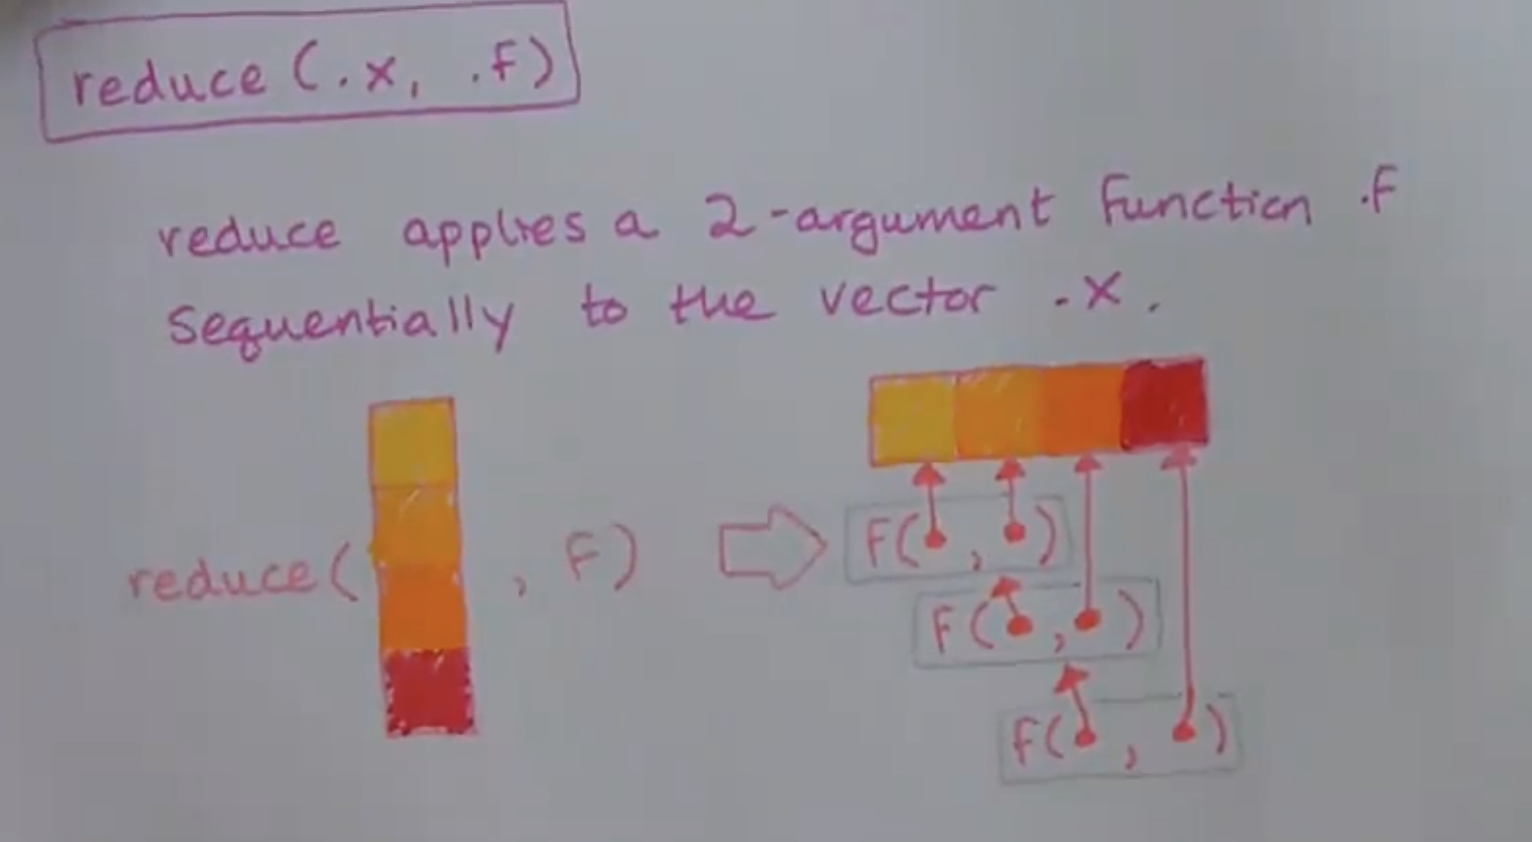 reduce (.x, .f)
reduce applies a 2-argument function .f
sequentially to the vector .x.
reduce( , f)
f( , )
f( , )
f( , )